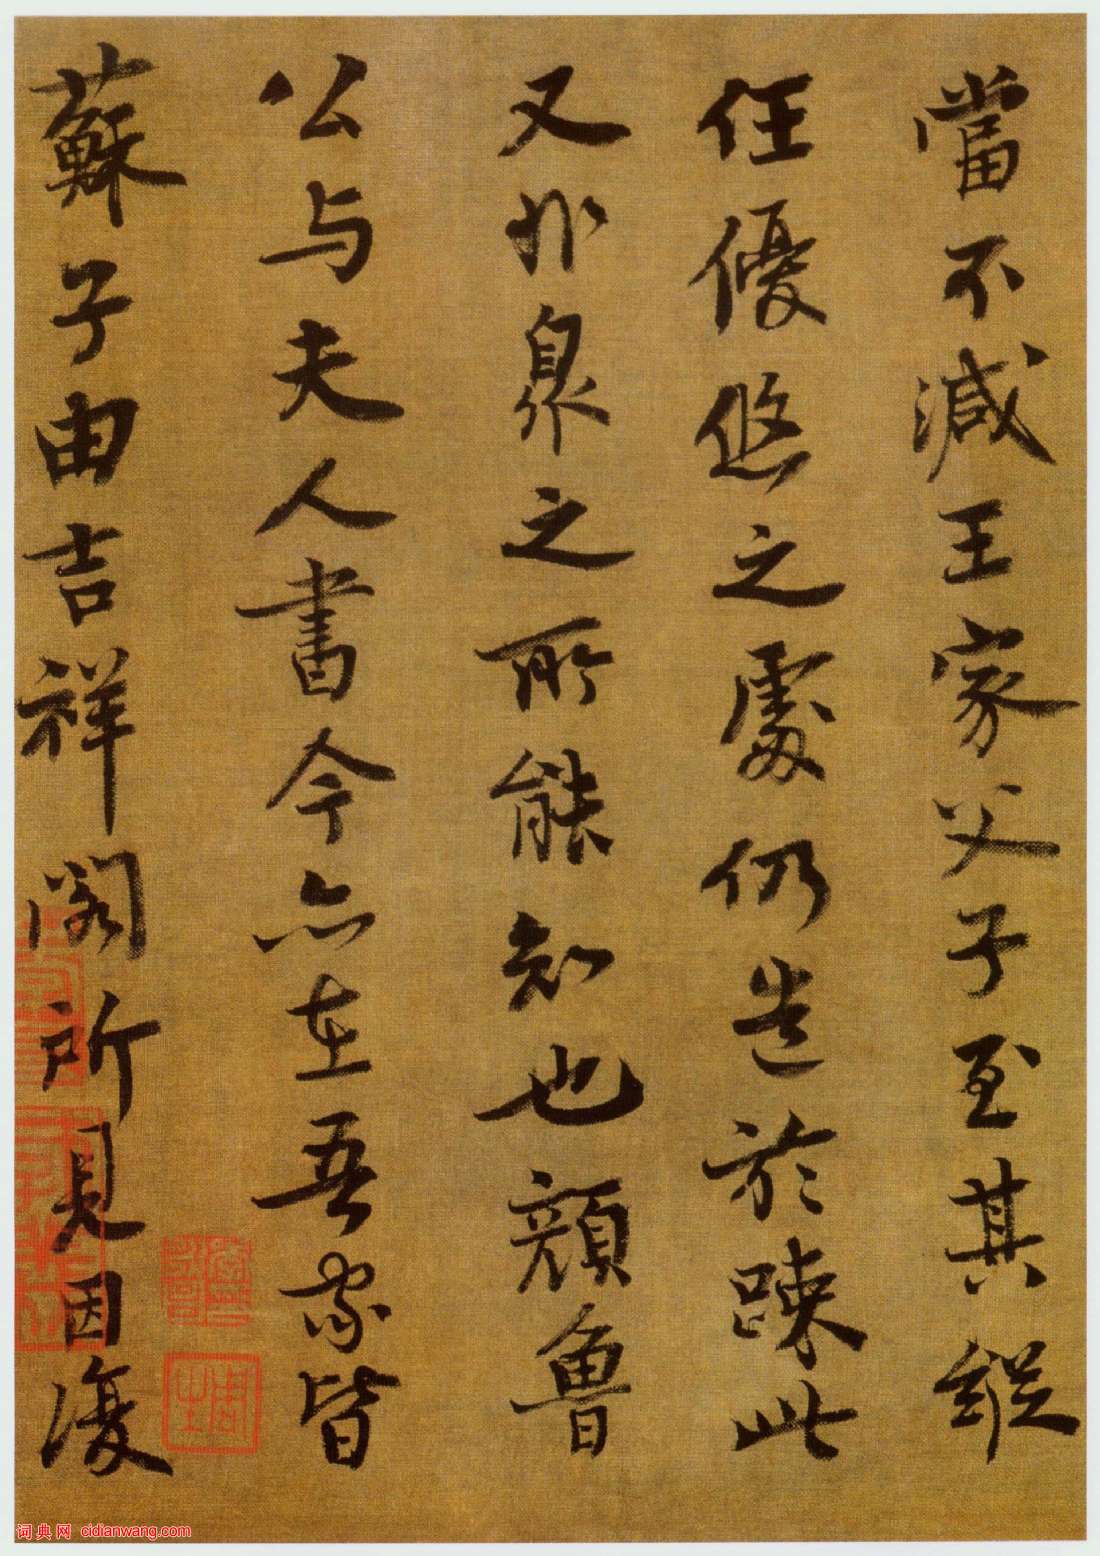 當不減王家父子至其縱
任優悠之處仍造於踈此
又非眾之所能知也顏魯
公与夫人書今亦在吾家皆
蘇子由吉祥閣所見因復
词典网 cidianwang.com